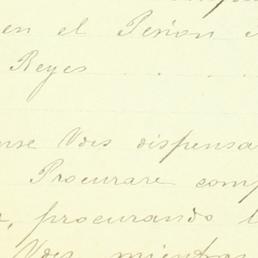 en el Peñon
Reyes . . . .
Vdes dispensa
Procurare comp
, procurando
Vdes mientras